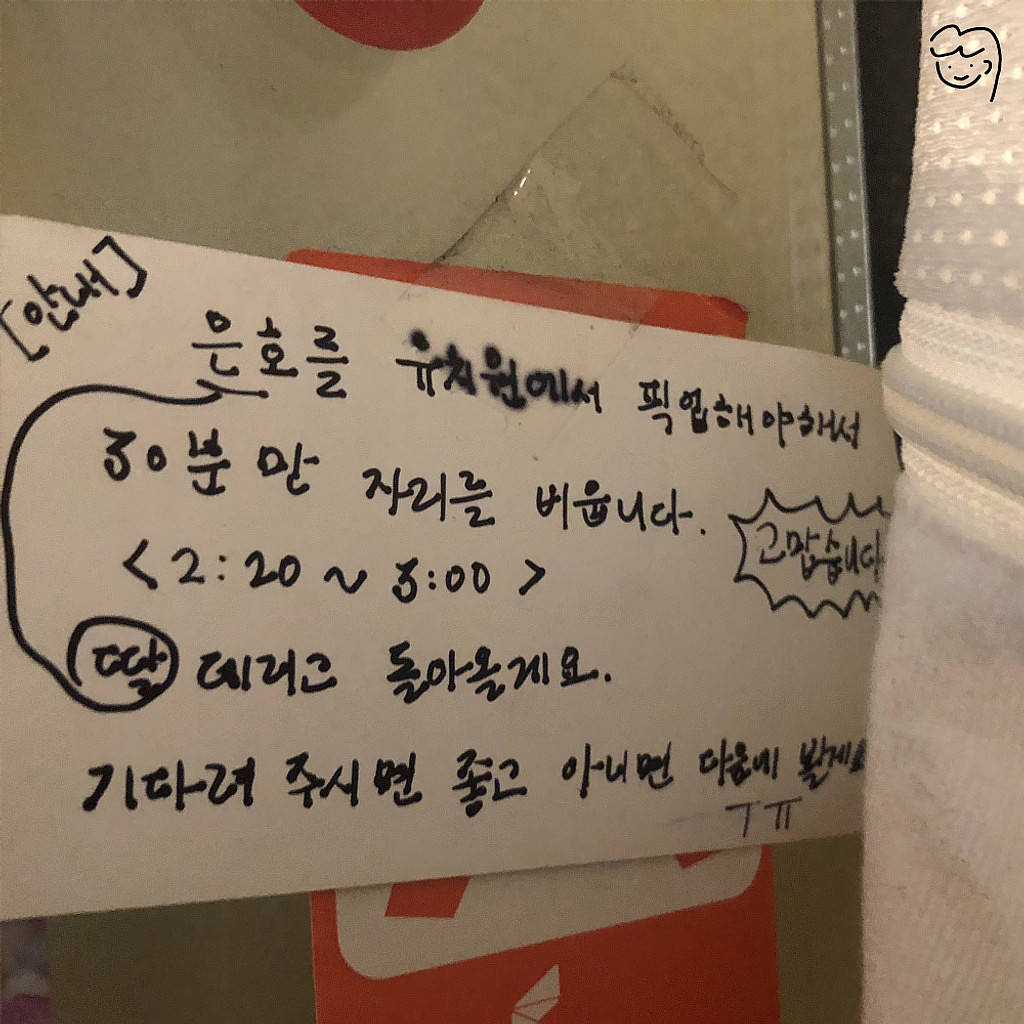 [안내]
은호를 유치원에서 픽업해야해서
30분만 자리를 비웁니다.
고맙습니다
<2:20 ~ 3:00>
딸 데리고 돌아올게요.
기다려 주시면 좋고 아니면 다음에 봘게요
ㅜㅠ